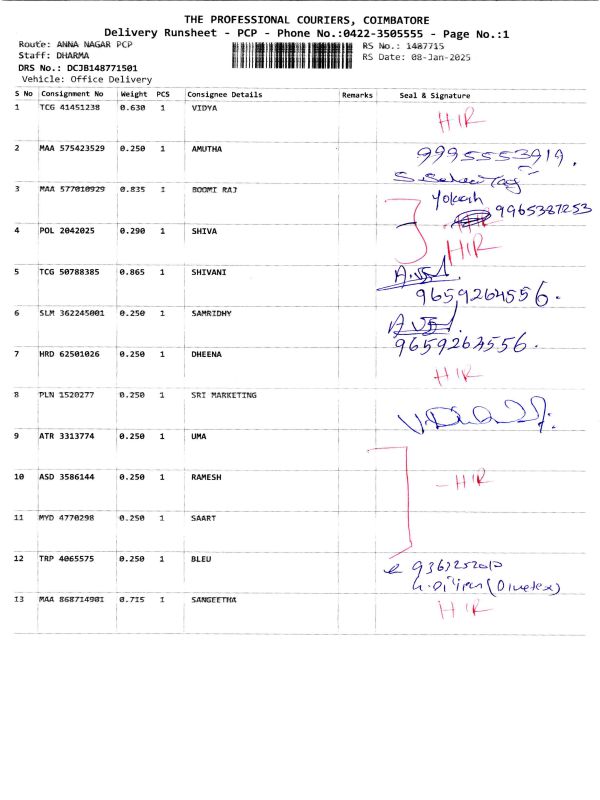 THE PROFESSIONAL COURIERS, COIMBATORE
Delivery Runsheet - PCP - Phone No.:0422-3505555 - Page No.:1
Route: ANNA NAGAR PCP RS No.: 1487715
Staff: DHARMA RS Date: 08-Jan-2025
DRS No.: DCJB148771501
Vehicle: Office Delivery
S No Consignment No Weight PCS Consignee Details Remarks Seal & Signature
1 TCG 41451238 0.630 1 VIDYA
HIR
2 MAA 575423529 0.250 1 AMUTHA
9995553919.
3 MAA 577010929 0.835 1 BOOMI RAJ
9965387253
4 POL 2042025 0.290 1 SHIVA
HIR
5 TCG 50788385 0.865 1 SHIVANI
9659264556.
6 SLM 362245001 0.250 1 SAMRIDHY
9659264556.
7 HRD 62501026 0.250 1 DHEENA
HIR
8 PLN 1520277 0.250 1 SRI MARKETING
9 ATR 3313774 0.250 1 UMA
10 ASD 3586144 0.250 1 RAMESH
- HIR
11 MYD 4770298 0.250 1 SAART
12 TRP 4065575 0.250 1 BLEU
13 MAA 868714901 0.715 1 SANGEETHA
HIR